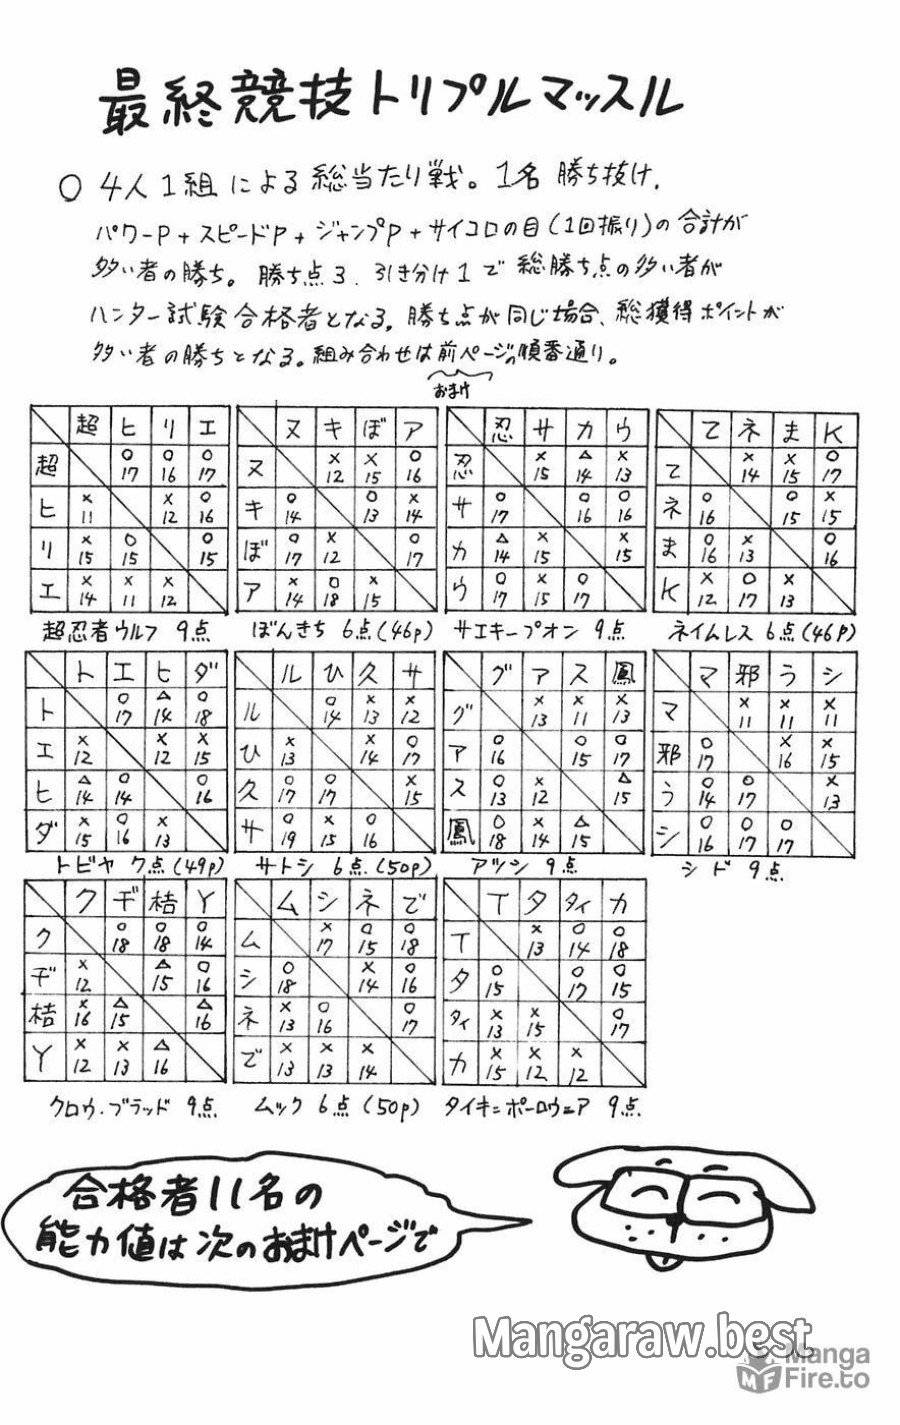 最終競技トリプルマッスル
○ 4人1組による総当たり戦。1名勝ち抜け.
パワーP+スピードP+ジャンプP+サイコロの目(1回振り)の合計が
多い者の勝ち。勝ち点3.引き分け1で総勝ち点の多い者が
ハンター試験合格者となる。勝ち点が同じ場合、総獲得ポイントが
多い者の勝ちとなる。組み合わせは前ページの順番通り。
おまけ
超 ヒ リ エ
超 ○17 ○16 ○17
ヒ ×11 ×12 ○16
リ ×15 ○15 ○15
エ ×14 ×11 ×12
超忍者ウルフ 9点
ヌ キ ぼ ア
ヌ ×12 ×15 ○16
キ ○14 ○13 ×14
ぼ ○17 ×12 ○17
ア ×14 ○18 ×15
ぼんきち 6点(46p)
忍 サ カ ウ
忍 ×15 △14 ×13
サ ○17 ○16 ○16
カ △14 ×15 ×15
ウ ○17 ×15 ○17
サエキープオン 9点
て ネ ま K
て ×14 ×15 ○17
ネ ○16 ○15 ×15
ま ○16 ×13 ○16
K ×12 ○17 ×13
ネイムレス 6点(46P)
ト エ ヒ ダ
ト ○17 △14 ○18
エ ×12 ×12 ×15
ヒ △14 ○14 ○16
ダ ×15 ○16 ×13
トビヤ 7点(49p)
ル ひ 久 サ
ル ○14 ×13 ×12
ひ ×13 ×14 ○17
久 ○17 ○17 ×15
サ ○19 ×15 ○16
サトシ 6点(50p)
グ ア ス 鳳
グ ×13 ×11 ×13
ア ○16 ○15 ○17
ス ○13 ×12 △15
鳳 ○18 ×14 △15
アツシ 9点
マ 邪 う シ
マ ×11 ×11 ×11
邪 ○17 ×16 ×15
う ○14 ○17 ×13
シ ○16 ○17 ○17
シド 9点
ク ヂ 桔 Y
ク ○18 ○18 ○14
ヂ ×12 △15 ○16
桔 ×16 △15 △16
Y ×12 ×13 △16
クロウ・ブラッド 9点
ム シ ネ で
ム ×17 ○15 ○18
シ ○18 ×14 ○16
ネ ×13 ○16 ○17
で ×13 ×13 ×14
ムック 6点(50p)
T タ タイ カ
T ×13 ○14 ○18
タ ○15 ○17 ○15
タイ ×13 ×15 ○17
カ ×15 ×12 ×12
タイキ=ポーロウェア 9点
合格者11名の
能力値は次のおまけページで
Mangaraw.best
MF Manga
Fire.to